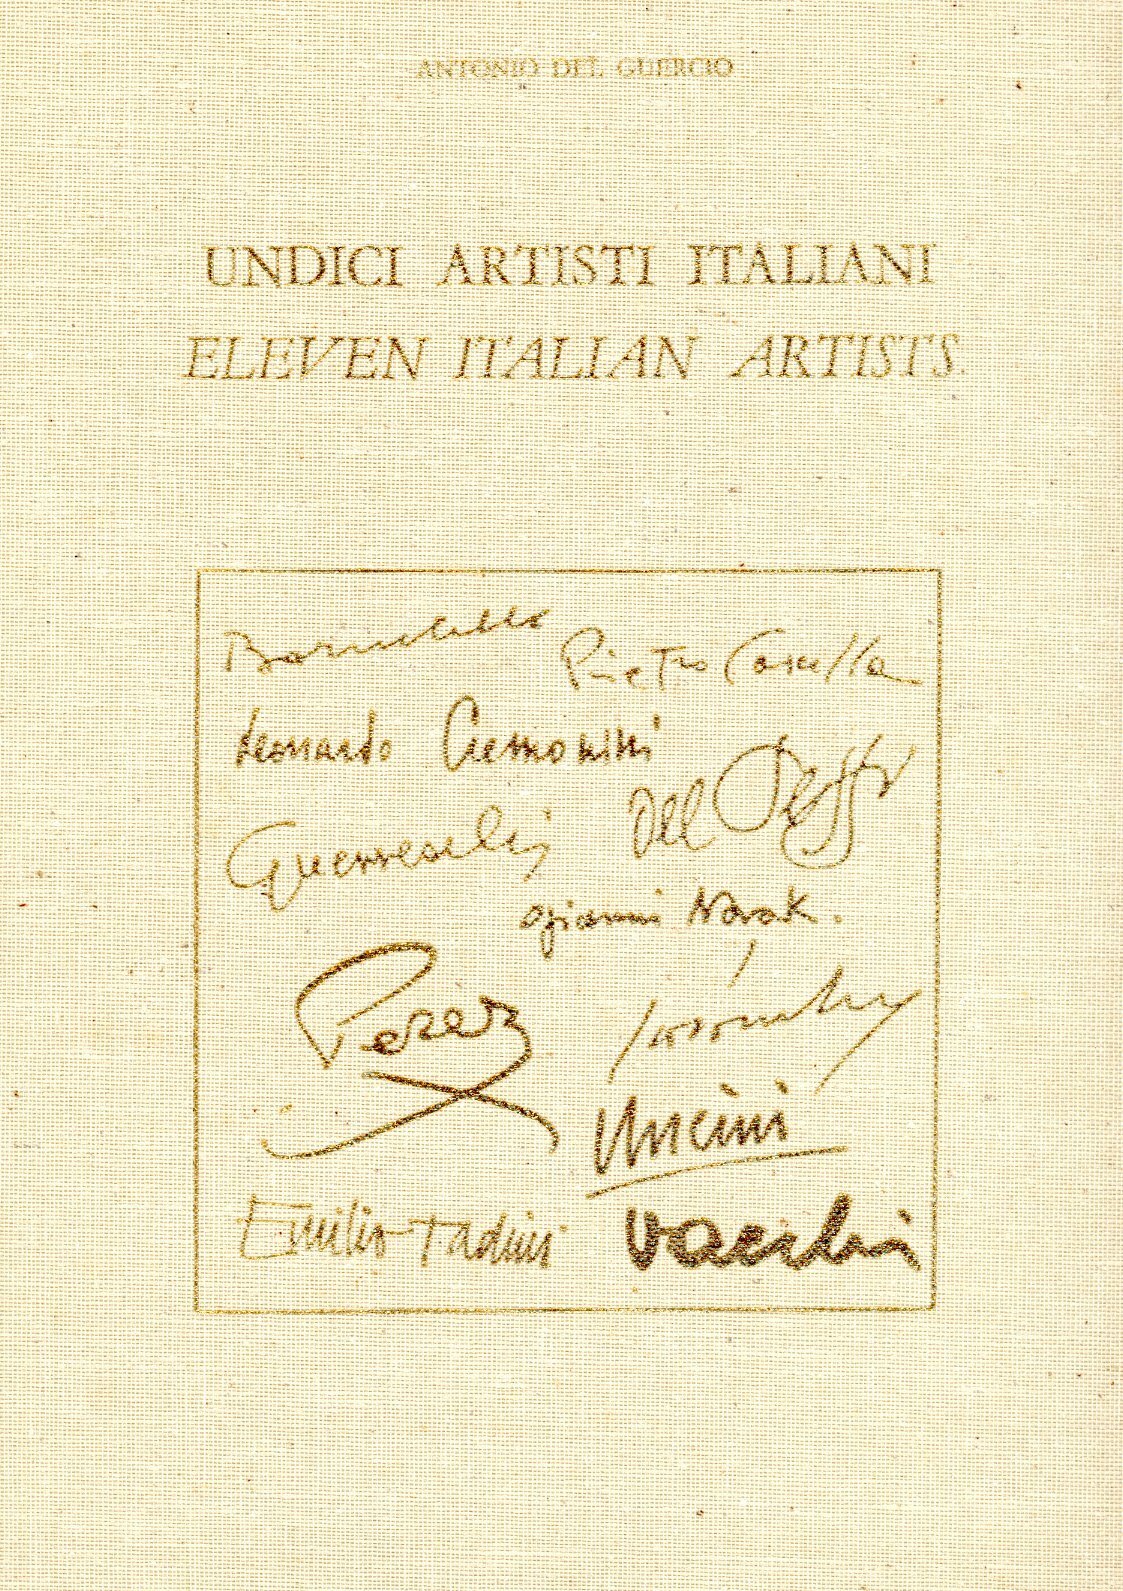 ANTONIO DEL GUERCIO
UNDICI ARTISTI ITALIANI
ELEVEN ITALIAN ARTISTS
Pietro Cascella
Leonardo Cremonini
Del Pezzo
Guerreschi
gianni Novak.
Perez
Uncini
Emilio Tadini
Vacchi